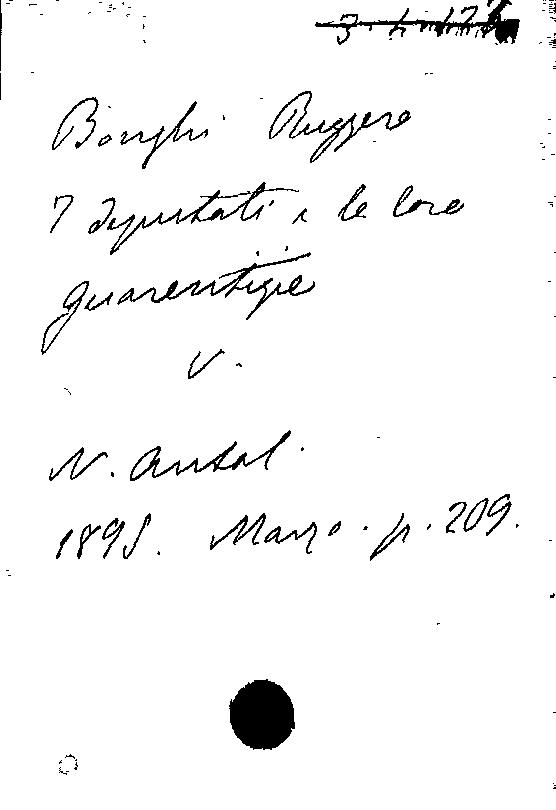 Bonghi Ruggero
I deputati e le loro
guarentigie
V.
N. Antol.
1895. Marzo. p. 209.